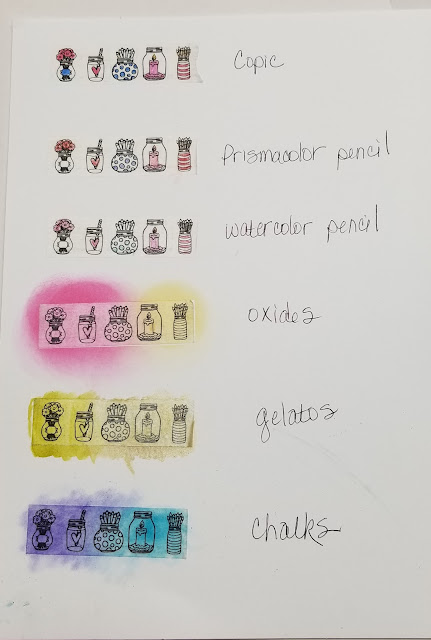 Copic
Prismacolor pencil
watercolor pencil
oxides
gelatos
chalks